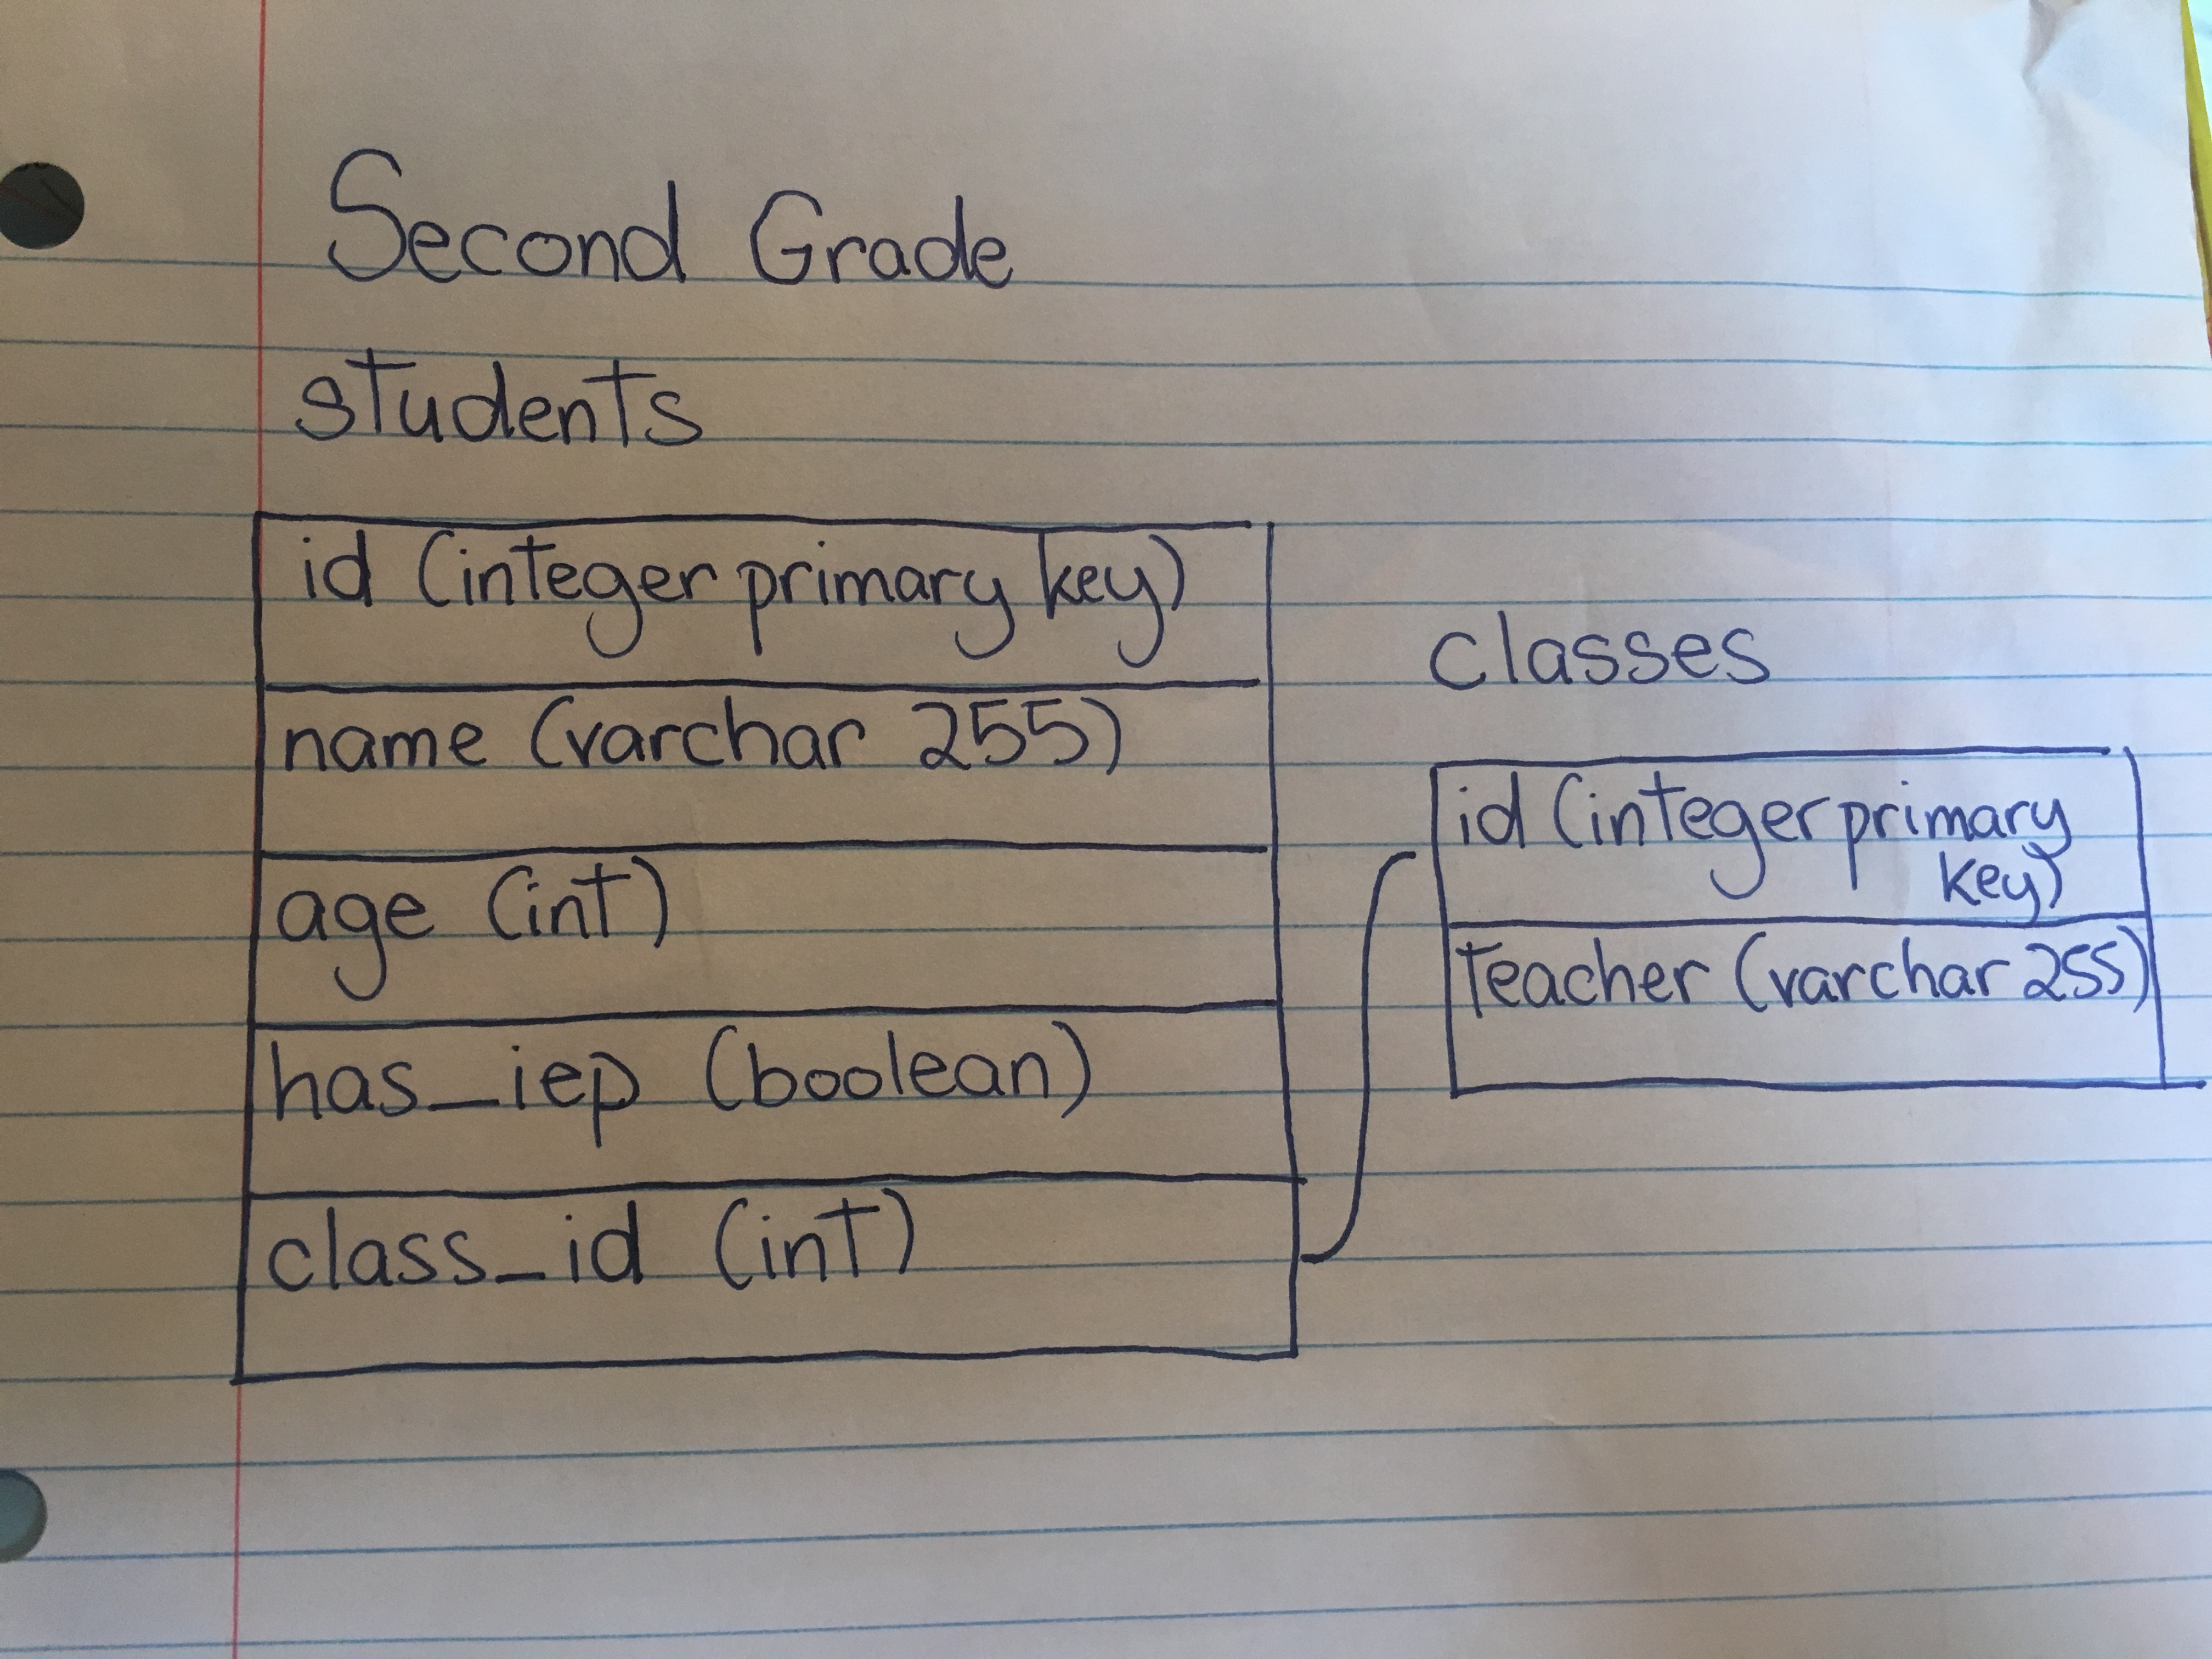 Second Grade
students
id (integer primary key)
name (varchar 255)
age (int)
has_iep (boolean)
class_id (int)
classes
id (integer primary
key)
teacher (varchar 255)